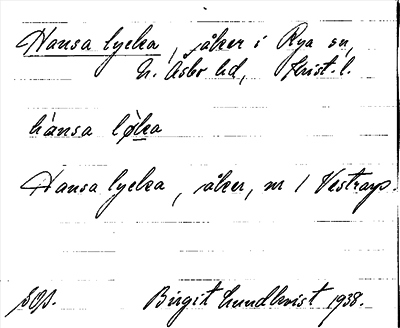 Hansa lycka, åker i Rya sn,
N. Åsbo hd, Krist. l.
hànsa lø̀ka
Hansa lycka, åker, nr 1 Vestraps.
Birgit Lundkvist 1938.